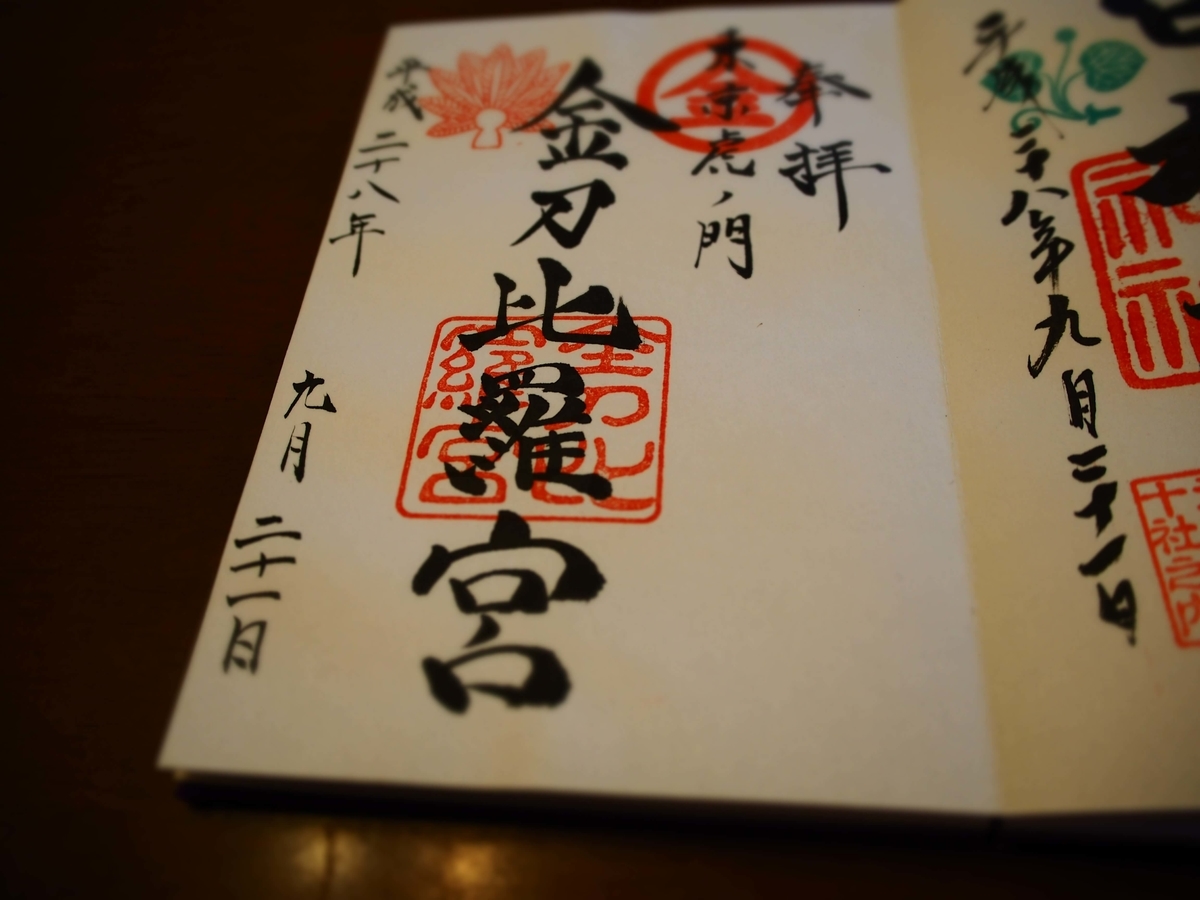 十社之内
平成二十八年九月二十一日
奉拝
東京虎ノ門
金
金刀比羅宮
金刀比羅宮
平成二十八年九月二十一日